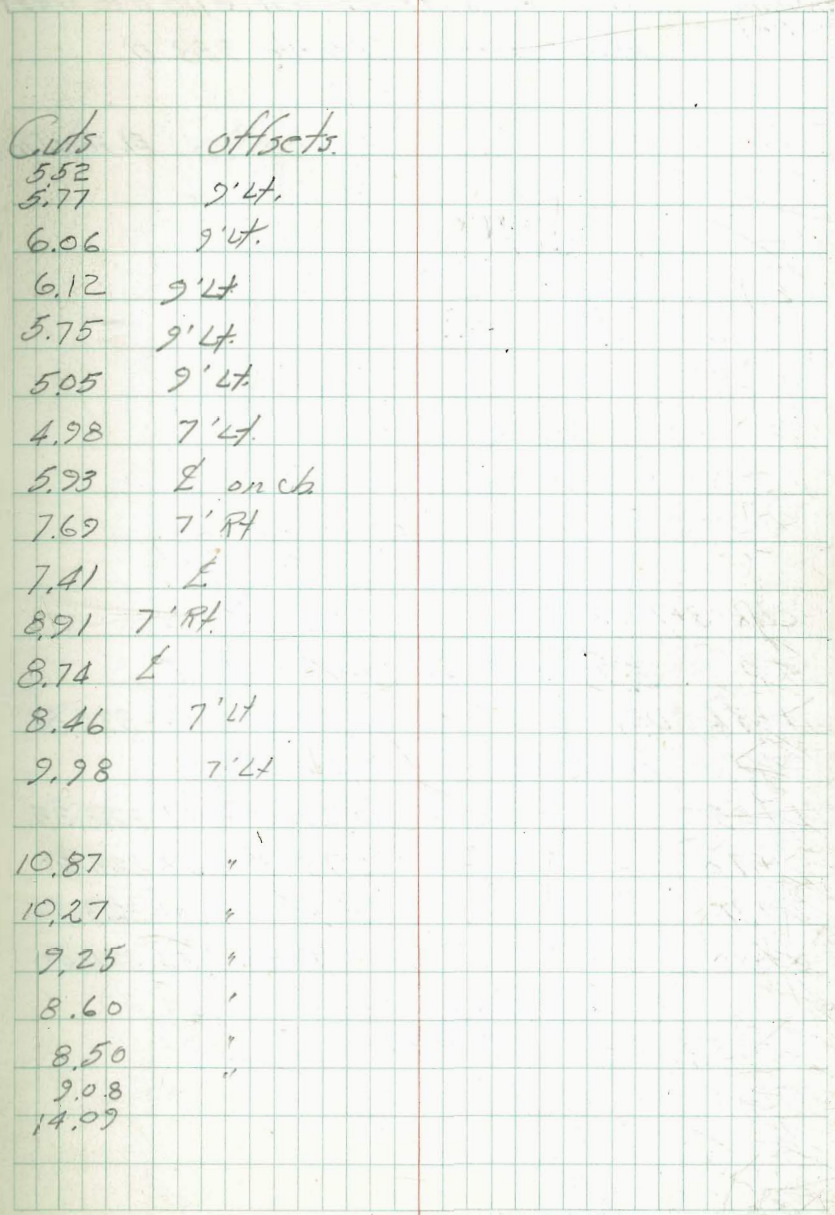 Cuts offsets.
5.52
5.77 9'Lt.
6.06 9'Lt.
6.12 9'Lt
5.75 9'Lt.
5.05 9'Lt.
4.98 7'Lt.
5.93 ℄ on cb.
7.69 7'Rt
7.41 ℄
8.91 7'Rt.
8.74 ℄
8.46 7'Lt
9.98 7'Lt
10.87 "
10.27 "
9.25 "
8.60 "
8.50 "
9.08 "
14.09